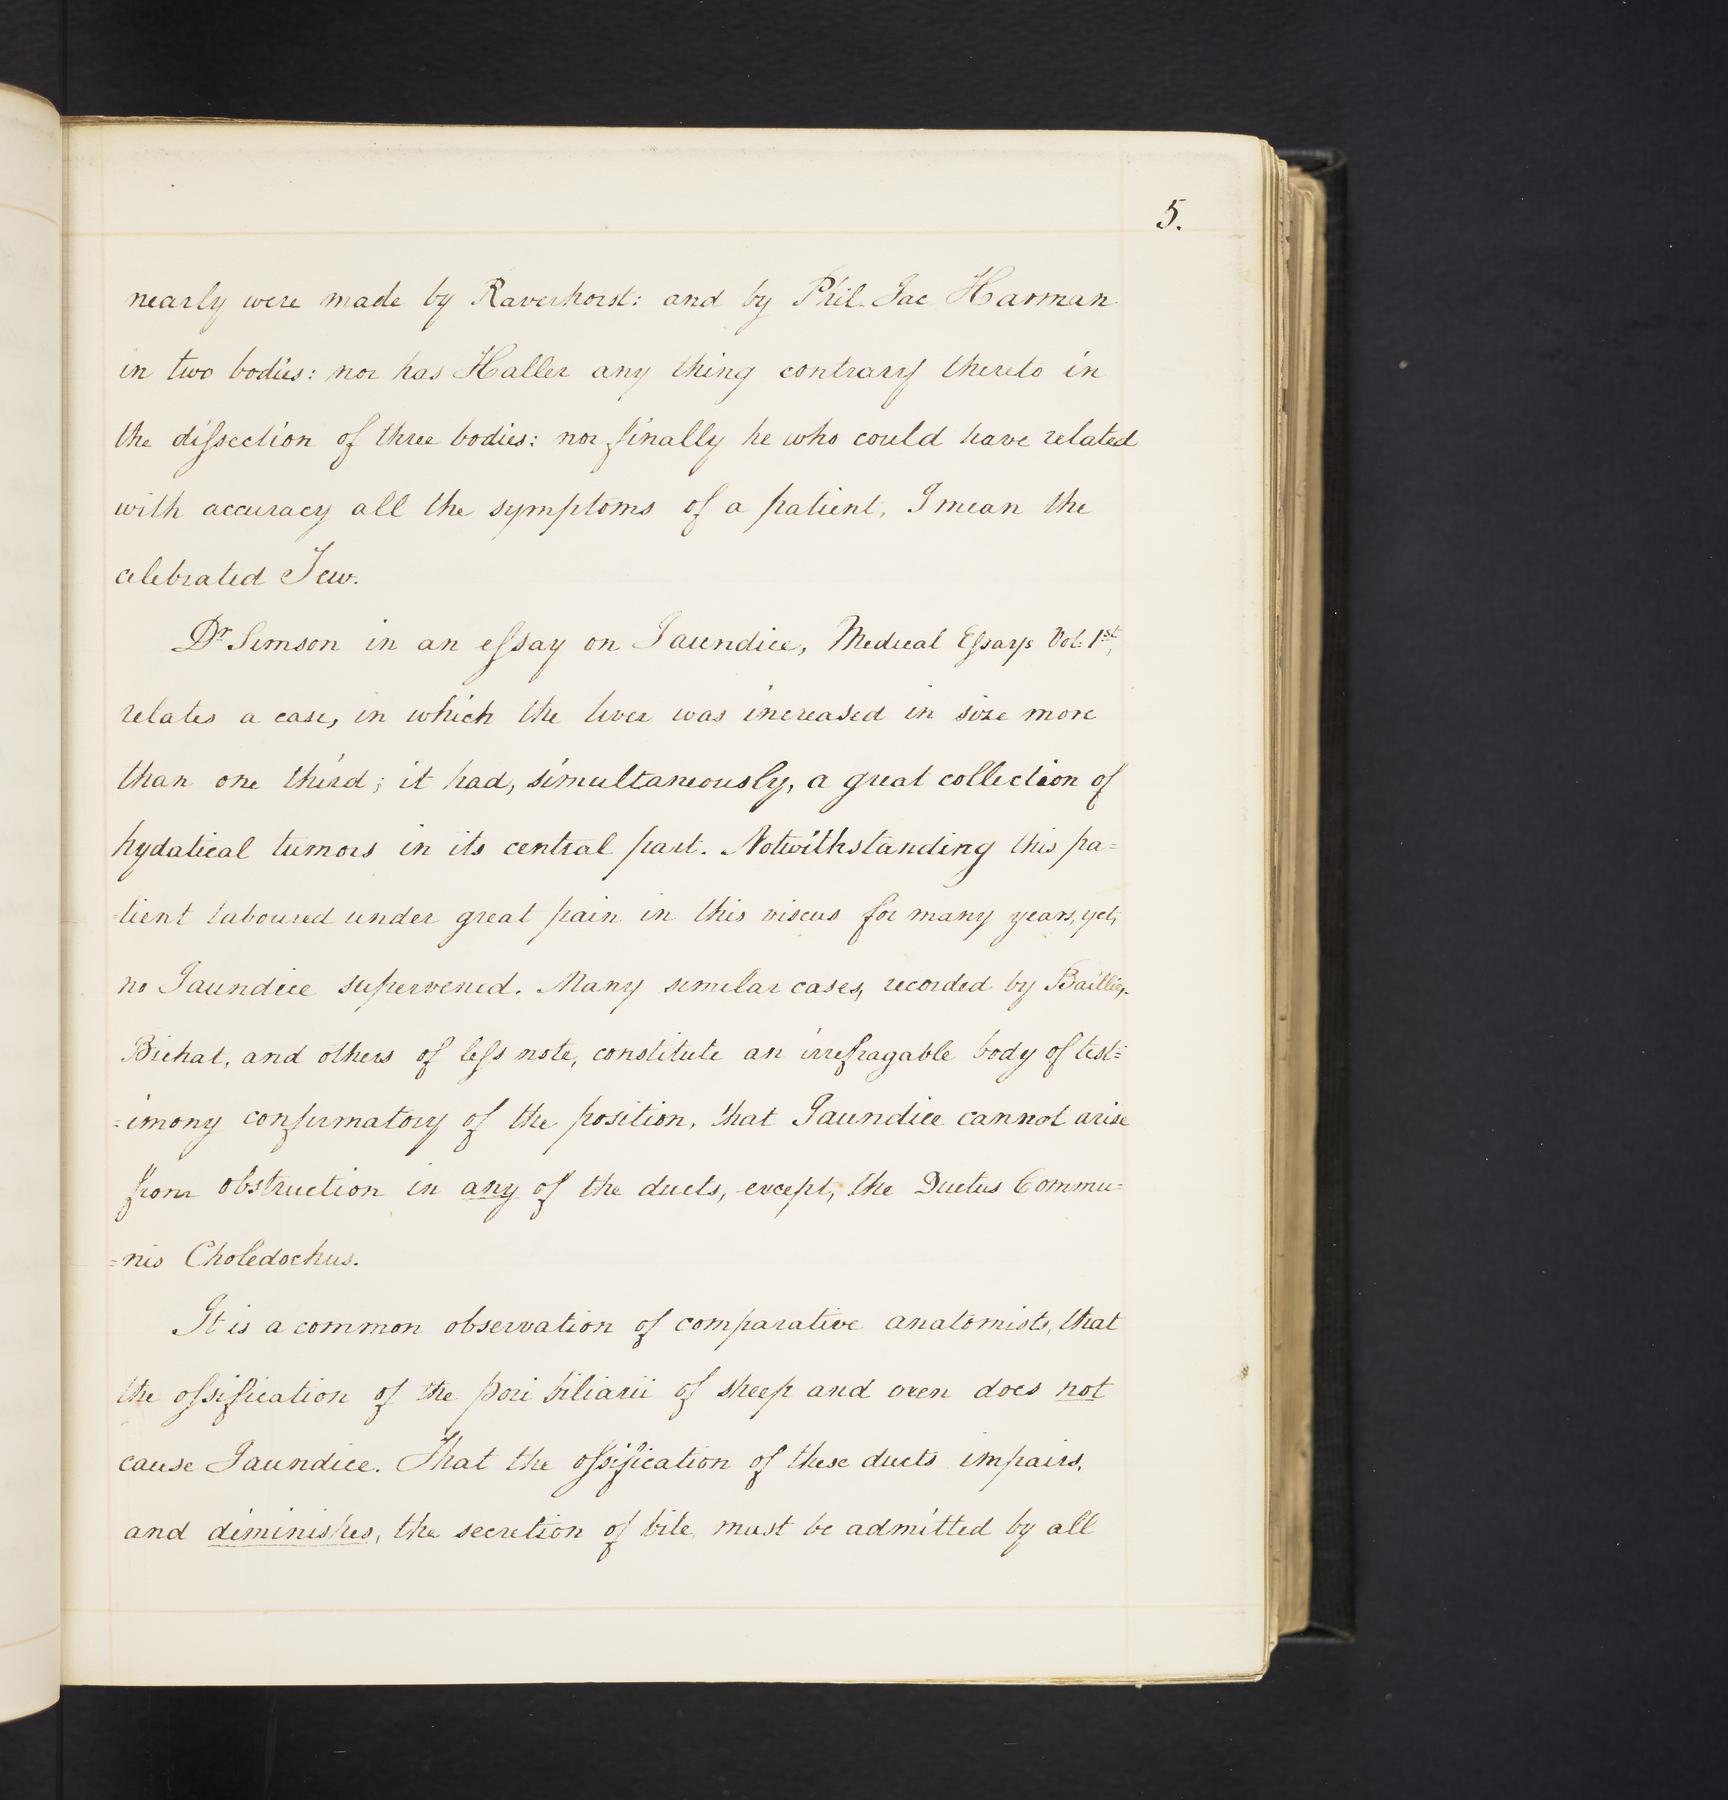 5.
nearly were made by Raverhorst: and by Phil. Jac Harman
in two bodies: nor has Haller any thing contrary thereto in
the dissection of three bodies: nor finally he who could have related
with accuracy all the symptoms of a patient, I mean the
celebrated Tew.
Dr. Simson in an essay on Jaundice, Medical Essays Vol: 1st,
relates a case, in which the liver was increased in size more
than one third; it had, simultaneously, a great collection of
hydatical tumors in its central part. Notwithstanding this pa=
=tient laboured under great pain in this viscus for many years, yet,
no Jaundice supervened. Many similar cases, recorded by Baillie,
Bichat, and others of less note, constitute an irrefragable body of test=
=imony confirmatory of the position, that Jaundice cannot arise
from obstruction in any of the ducts, except, the Ductus Commu=
=nis Choledochus.
It is a common observation of comparative anatomists, that
the ossification of the pori biliarii of sheep and oxen does not
cause Jaundice. That the ossification of these ducts impairs,
and diminishes, the secretion of bile, must be admitted by all